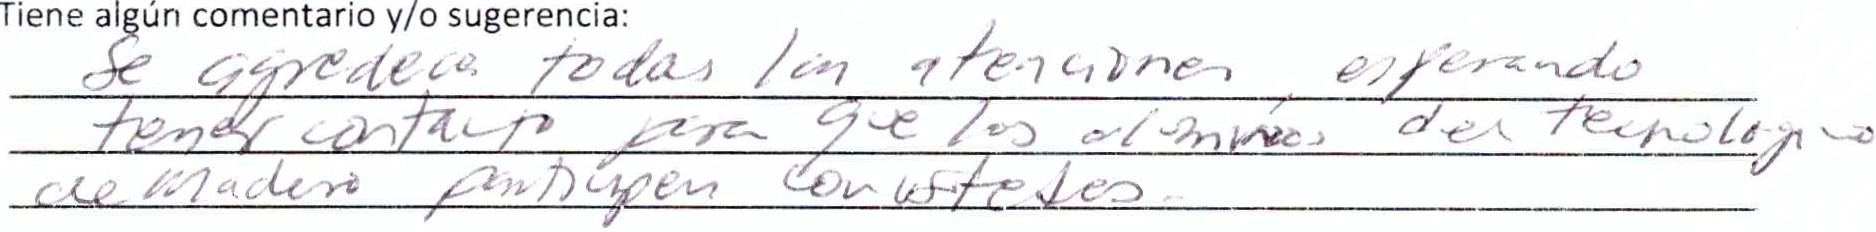 Tiene algún comentario y/o sugerencia:
Se agredece todas las atenciones esperando
tener contacto para que los alumnos del tecnologico
de Madero participen con ustedes.